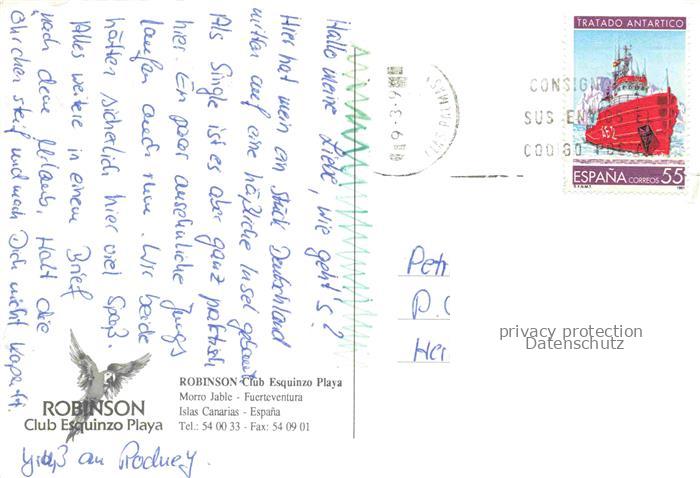 Hallo meine Liebe, wie geht's?
Hier hat man ein Stück Deutschland
mitten auf eine häßliche Insel gebaut.
Als Single ist es aber ganz praktisch
hier. Ein paar ansehnliche Jungs
laufen auch rum. Wir beide
hätten sicherlich hier viel Spaß.
Alles weitere in einem Brief
nach dem Urlaub. Halt die
Öhrchen steif und mach Dich nicht kaputt.
Gruß an Rodney.
ROBINSON
Club Esquinzo Playa
ROBINSON Club Esquinzo Playa
Morro Jable - Fuerteventura
Islas Canarias - España
Tel.: 54 00 33 - Fax: 54 09 01
TRATADO ANTARTICO
ESPAÑA CORREOS 55
F.N.M.T. 1991
CONSIGN
SUS ENV
CODIGO POS
Petr
P.
Hei
privacy protection
Datenschutz